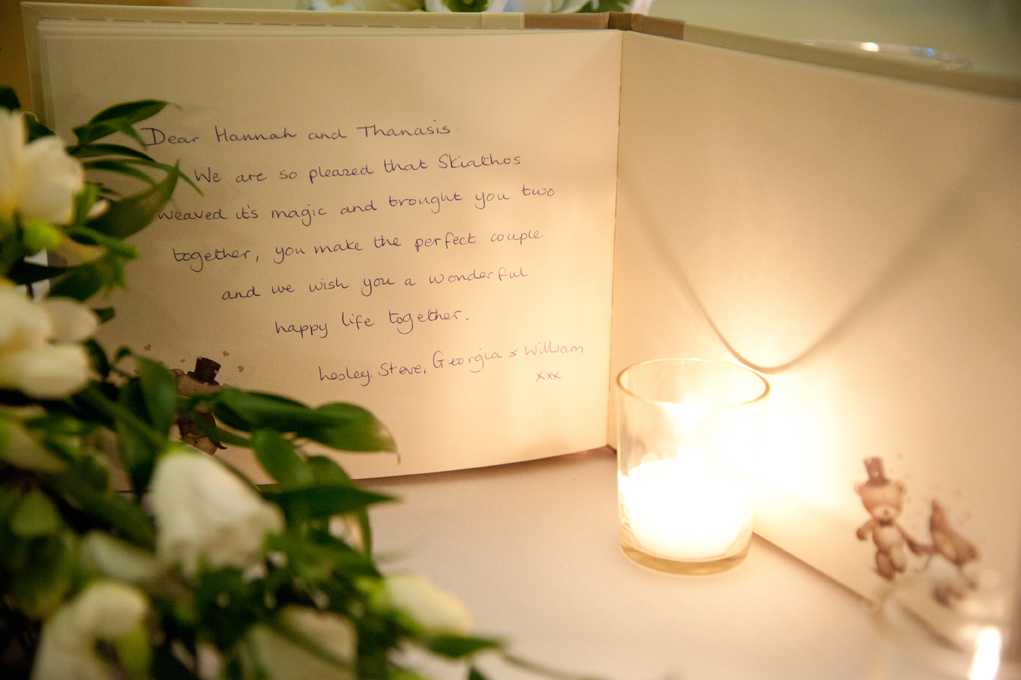 Dear Hannah and Thanasis
We are so pleased that Skiathos
weaved it's magic and brought you two
together, you make the perfect couple
and we wish you a wonderful
happy life together.
Lesley, Steve, Georgia x William
xxx